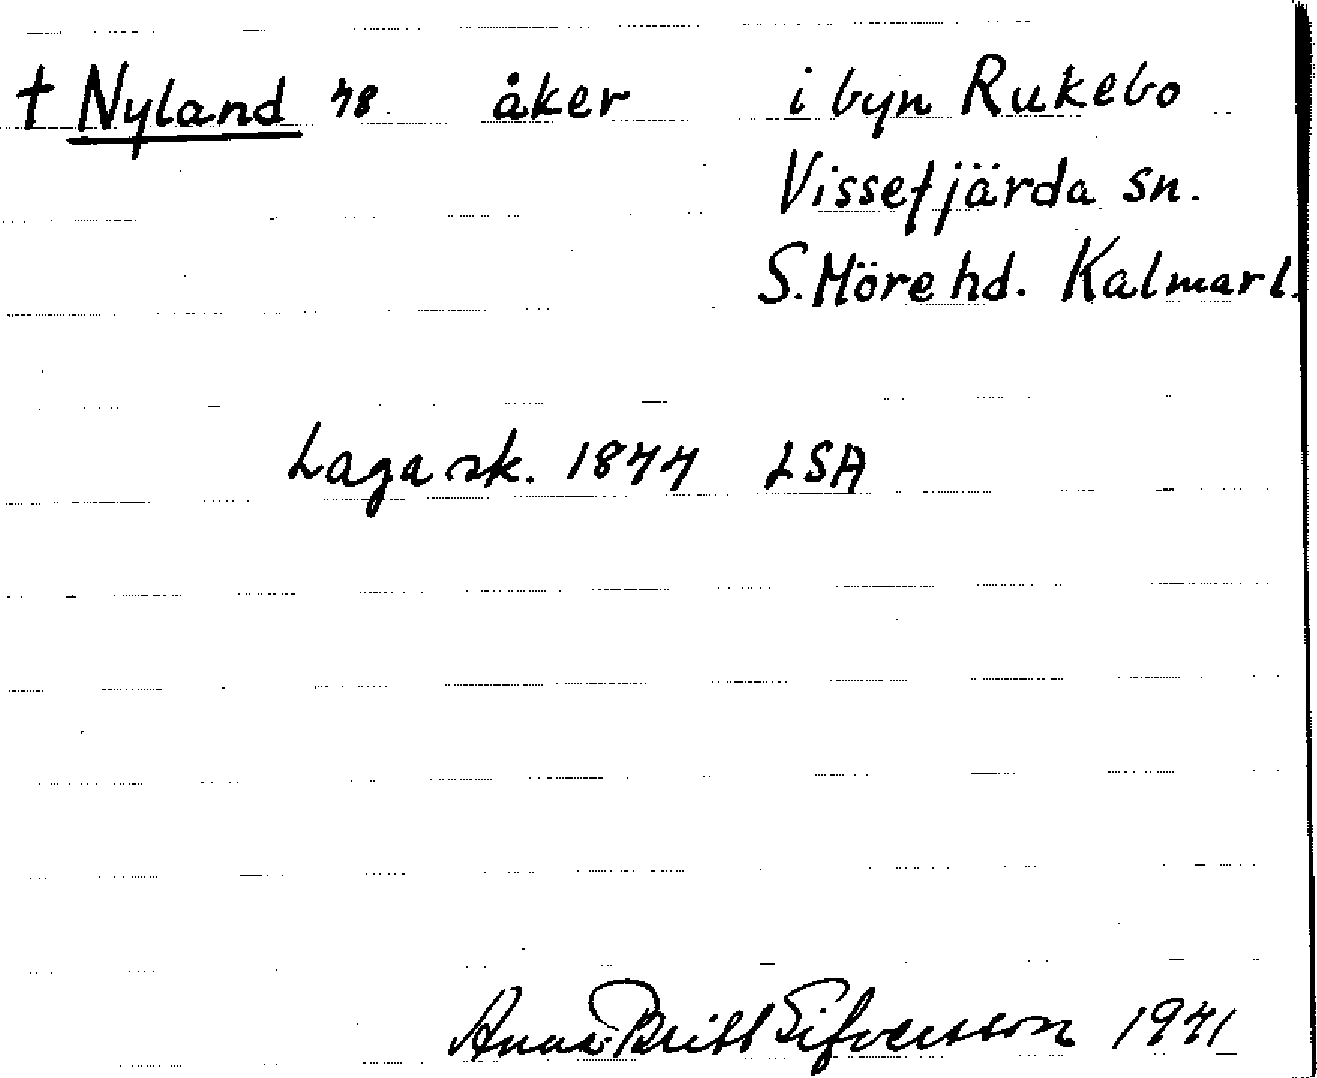 † Nyland 78 åker i byn Rukebo
Vissefjärda sn.
S. Möre hd. Kalmar l.
Laga sk. 1877 LSA
Anna-Britt Sifversson 1971